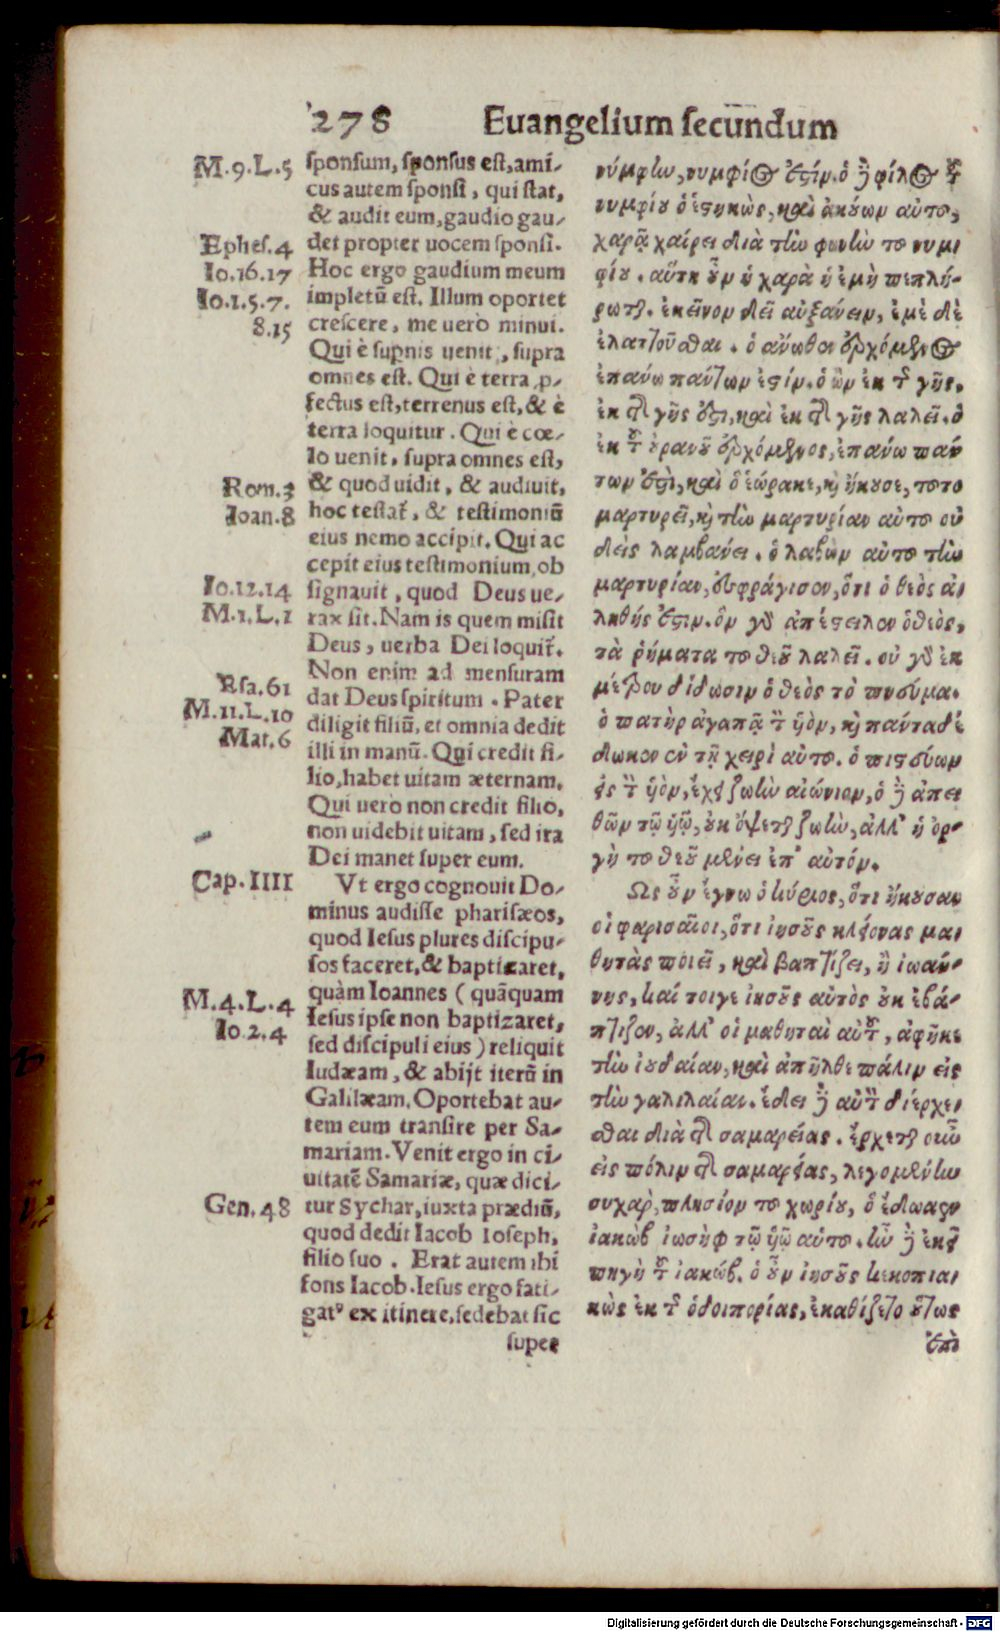 278 Euangelium secundum
M.9.L.5
Ephes.4
Io.16.17
Io.1.5.7.
8.15
Rom.3
Ioan.8
Io.12.14
M.1.L.1
Esa.61
M.11.L.10
Mat.6
Cap.IIII
M.4.L.4
Io.2.4
Gen.48
sponsum, sponsus est, ami-
cus autem sponsi, qui stat,
& audit eum, gaudio gau-
det propter uocem sponsi.
Hoc ergo gaudium meum
impletū est. Illum oportet
crescere, me uerò minui.
Qui è supnis uenit, supra
omnes est. Qui è terra p-
fectus est, terrenus est, & è
terra loquitur. Qui è cœ-
lo uenit, supra omnes est,
& quod uidit, & audiuit,
hoc testat̃, & testimoniū
eius nemo accipit. Qui ac
cepit eius testimonium, ob
signauit, quod Deus ue-
rax sit. Nam is quem misit
Deus, uerba Dei loquit̃.
Non enim ad mensuram
dat Deus spiritum. Pater
diligit filiū, et omnia dedit
illi in manū. Qui credit fi-
lio, habet uitam æternam.
Qui uero non credit filio,
non uidebit uitam, sed ira
Dei manet super eum.
Vt ergo cognouit Do-
minus audisse pharisæos,
quod Iesus plures discipu-
los faceret, & baptizaret,
quàm Ioannes (quāquam
Iesus ipse non baptizaret,
sed discipuli eius) reliquit
Iudæam, & abijt iterū in
Galilæam. Oportebat au-
tem eum transire per Sa-
mariam. Venit ergo in ci-
uitatē Samariæ, quæ dici-
tur Sychar, iuxta prædiū,
quod dedit Iacob Ioseph,
filio suo. Erat autem ibi
fons Iacob. Iesus ergo fati-
gatꝰ ex itinere, sedebat sic
super
νύμφην, νυμφίος ἐστίν. ὁ δὲ φίλος τοῦ
νυμφίου ὁ ἑστηκὼς, καὶ ἀκούων αὐτοῦ,
χαρᾷ χαίρει διὰ τὴν φωνὴν τοῦ νυμ
φίου. αὕτη οὖν ἡ χαρὰ ἡ ἐμὴ πεπλή-
ρωται. ἐκεῖνον δεῖ αὐξάνειν, ἐμὲ δὲ
ἐλαττοῦσθαι. ὁ ἄνωθεν ἐρχόμενος
ἐπάνω πάντων ἐστίν. ὁ ὢν ἐκ τῆς γῆς,
ἐκ τῆς γῆς ἐστι, καὶ ἐκ τῆς γῆς λαλεῖ. ὁ
ἐκ τοῦ οὐρανοῦ ἐρχόμενος, ἐπάνω πάν
των ἐστὶ, καὶ ὃ ἑώρακε, καὶ ἤκουσε, τοῦτο
μαρτυρεῖ, καὶ τὴν μαρτυρίαν αὐτοῦ οὐ
δεὶς λαμβάνει. ὁ λαβὼν αὐτοῦ τὴν
μαρτυρίαν, ἐσφράγισεν, ὅτι ὁ θεὸς ἀ-
ληθής ἐστιν. ὃν γὰρ ἀπέστειλεν ὁ θεὸς,
τὰ ῥήματα τοῦ θεοῦ λαλεῖ. οὐ γὰρ ἐκ
μέτρου δίδωσιν ὁ θεὸς τὸ πνεῦμα.
ὁ πατὴρ ἀγαπᾷ τὸν υἱὸν, καὶ πάντα δέ
δωκεν ἐν τῇ χειρὶ αὐτοῦ. ὁ πιστεύων
εἰς τὸν υἱὸν, ἔχει ζωὴν αἰώνιον, ὁ δὲ ἀπει
θῶν τῷ υἱῷ, οὐκ ὄψεται ζωὴν, ἀλλ' ἡ ὀρ-
γὴ τοῦ θεοῦ μένει ἐπ' αὐτόν.
Ὡς οὖν ἔγνω ὁ κύριος, ὅτι ἤκουσαν
οἱ φαρισαῖοι, ὅτι ἰησοῦς πλείονας μα-
θητὰς ποιεῖ, καὶ βαπτίζει, ἢ ἰωάν-
νης, καί τοιγε ἰησοῦς αὐτὸς οὐκ ἐβά-
πτιζεν, ἀλλ' οἱ μαθηταὶ αὐτοῦ, ἀφῆκε
τὴν ἰουδαίαν, καὶ ἀπῆλθε πάλιν εἰς
τὴν γαλιλαίαν. ἔδει δὲ αὐτὸν διέρχε-
σθαι διὰ τῆς σαμαρείας. ἔρχεται οὖν
εἰς πόλιν τῆς σαμαρείας, λεγομένην
συχὰρ, πλησίον τοῦ χωρίου, ὃ ἔδωκεν
ἰακὼβ ἰωσὴφ τῷ υἱῷ αὐτοῦ. ἦν δὲ ἐκεῖ
πηγὴ τοῦ ἰακώβ. ὁ οὖν ἰησοῦς κεκοπια-
κὼς ἐκ τῆς ὁδοιπορίας, ἐκαθέζετο οὕτως
ἐπὶ
Digitalisierung gefördert durch die Deutsche Forschungsgemeinschaft - DFG